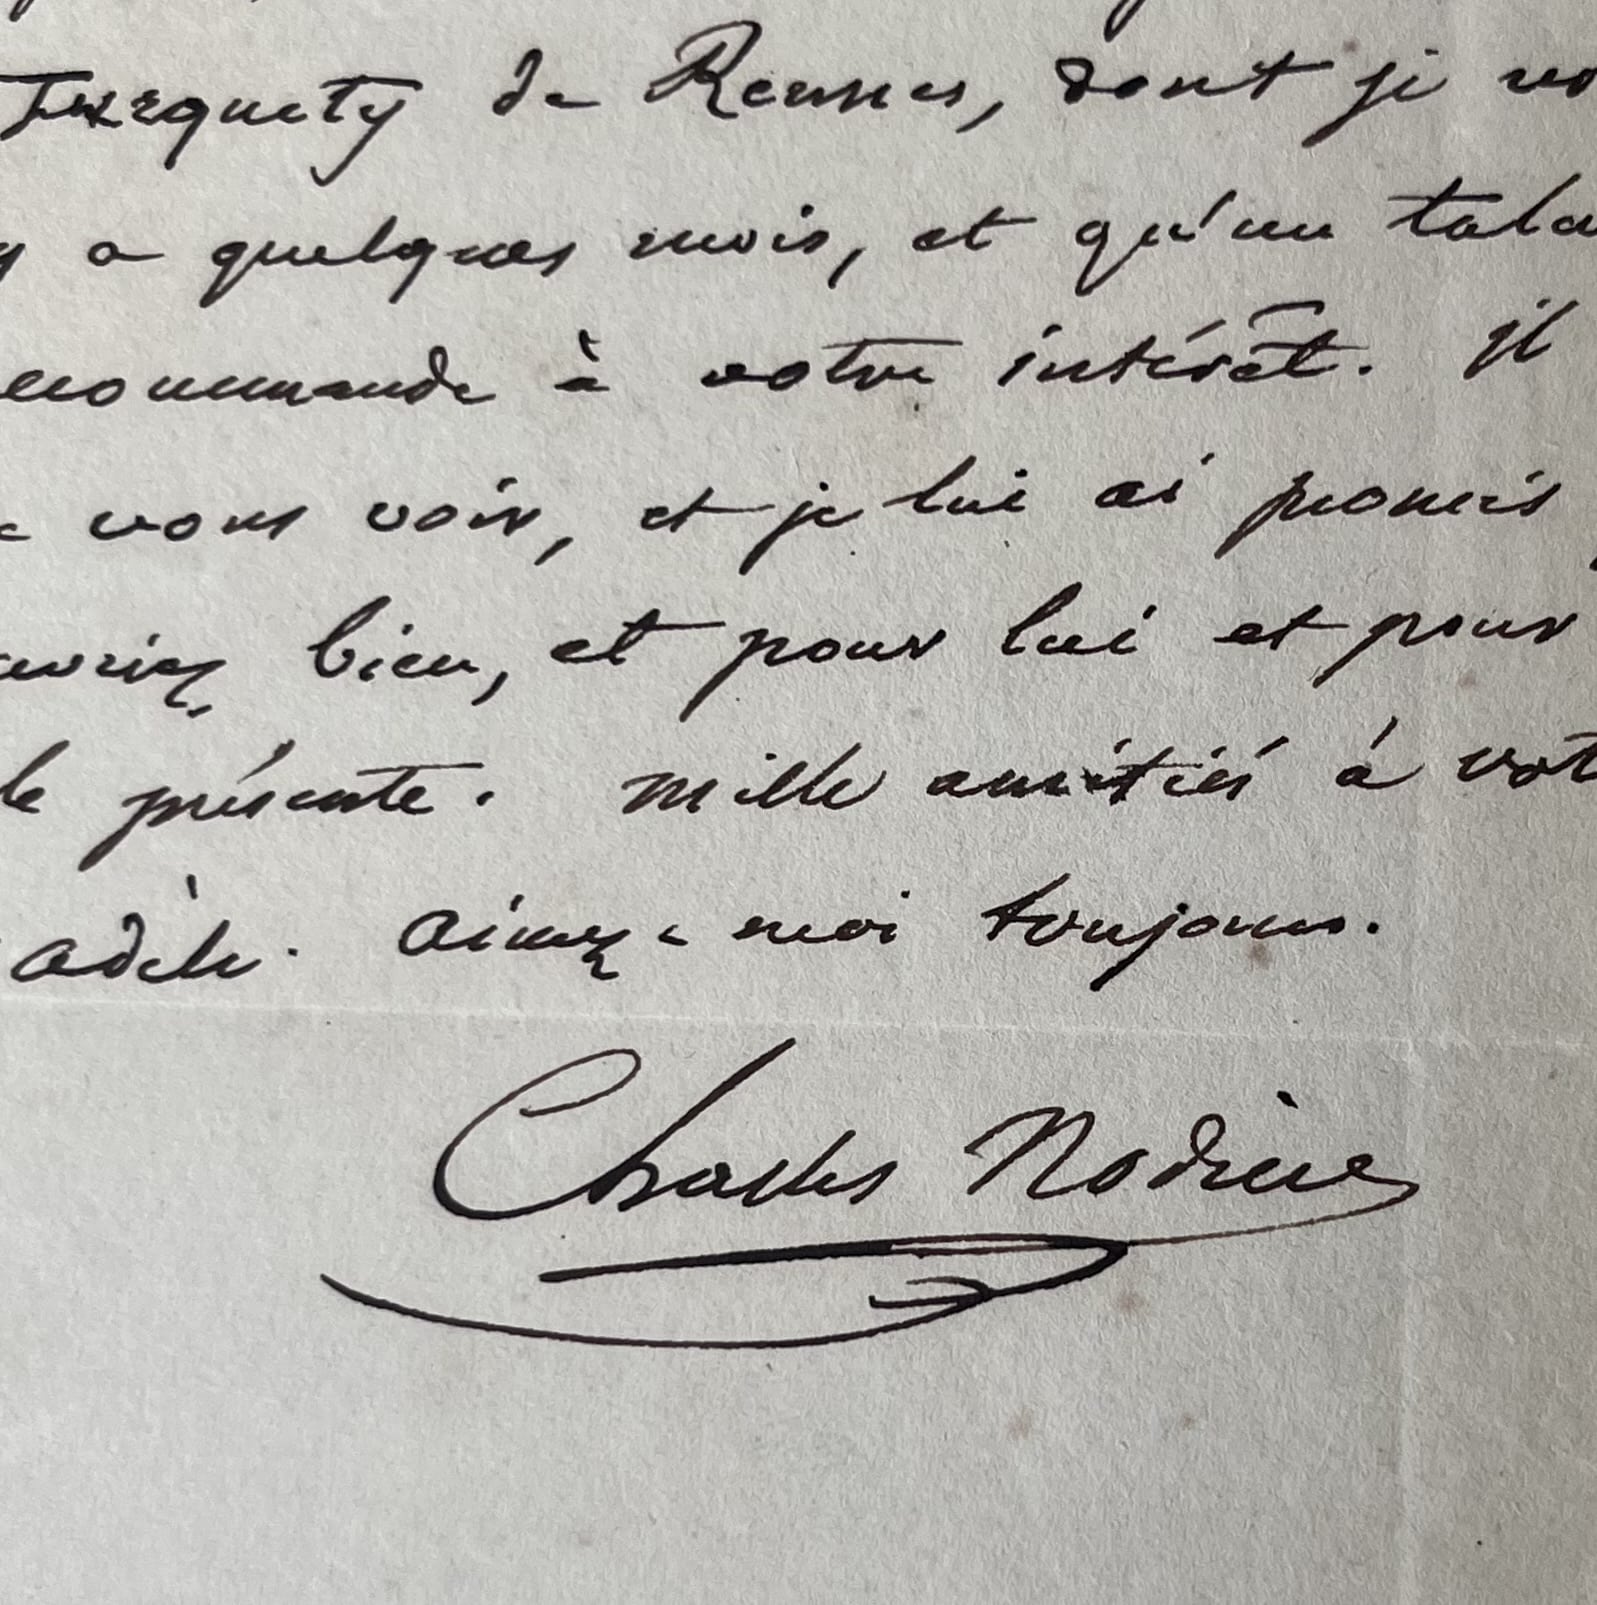 Turquety de Rennes, dont je vo
y a quelques mois, et qu'un tale
ecommande à votre intérêt. Il
e vous voir, et je lui ai promis
uvriez bien, et pour lui et pour
le présente. mille amitiés à vot
adèle. aimez-moi toujours.
Charles Nodier